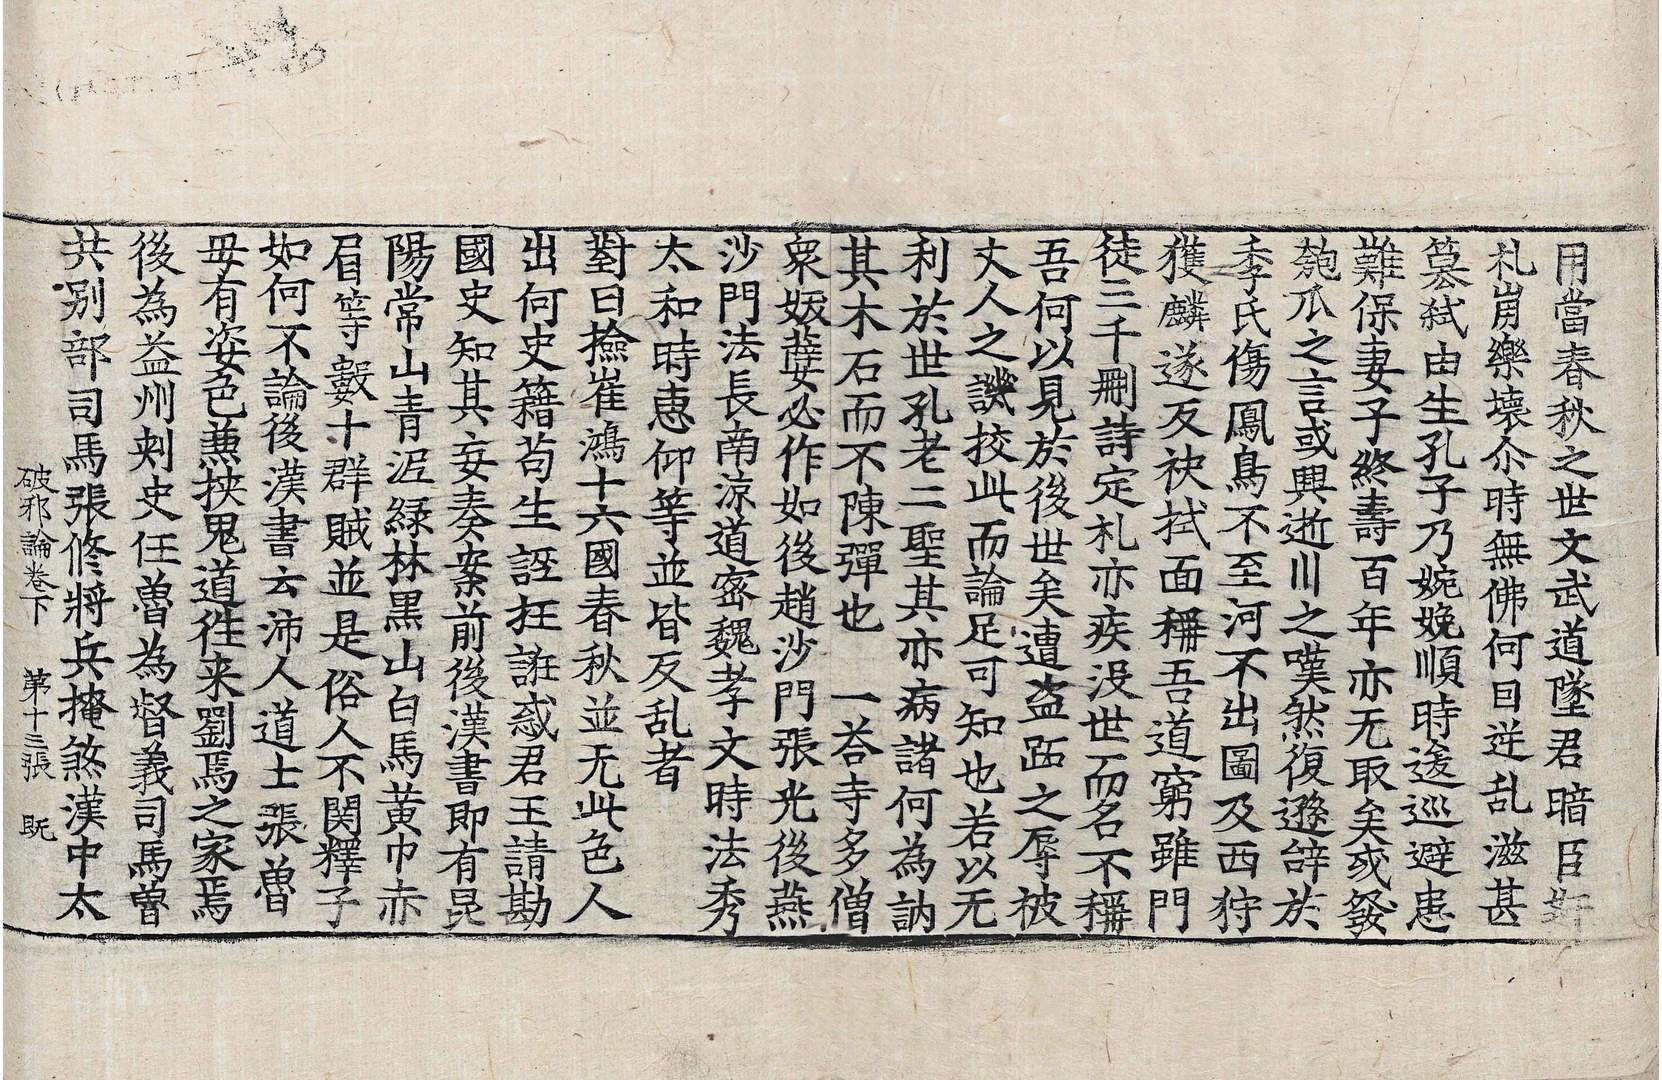 用當春秋之世文武道墜君暗臣奸
礼崩樂壞尒時無佛何因逆乱滋甚
篡弑由生孔子乃婉娩順時逡巡避患
難保妻子終壽百年亦无取矣或發
匏爪之言或興逝川之嘆然復遜辞於
季氏傷鳳鳥不至河不出圖及西狩
獲麟遂反袂拭面稱吾道窮雖門
徒三千刪詩定札亦疾没世而名不稱
吾何以見於後世矣遭盗跖之辱被
丈人之譏挍此而論足可知也若以无
利於世孔老二聖其亦病諸何為訥
其木石而不陳彈也　一荅寺多僧
衆妭孽必作如後趙沙門張光後燕
沙門法長南凉道密魏孝文時法秀
太和時惠仰等並皆反乱者
對曰撿崔鴻十六國春秋並无此色人
出何史籍苟生誣抂誑惑君王請勘
國史知其妄奏案前後漢書即有昆
陽常山青泥緑林黒山白馬黄巾赤
眉等數十群賊並是俗人不関釋子
如何不論後漢書云沛人道士張魯
毋有姿色兼挾鬼道徃来劉焉之家焉
後為益州刾史任魯為督義司馬魯
共別部司馬張修將兵掩煞漢中太
破邪論卷下　第十三張　既